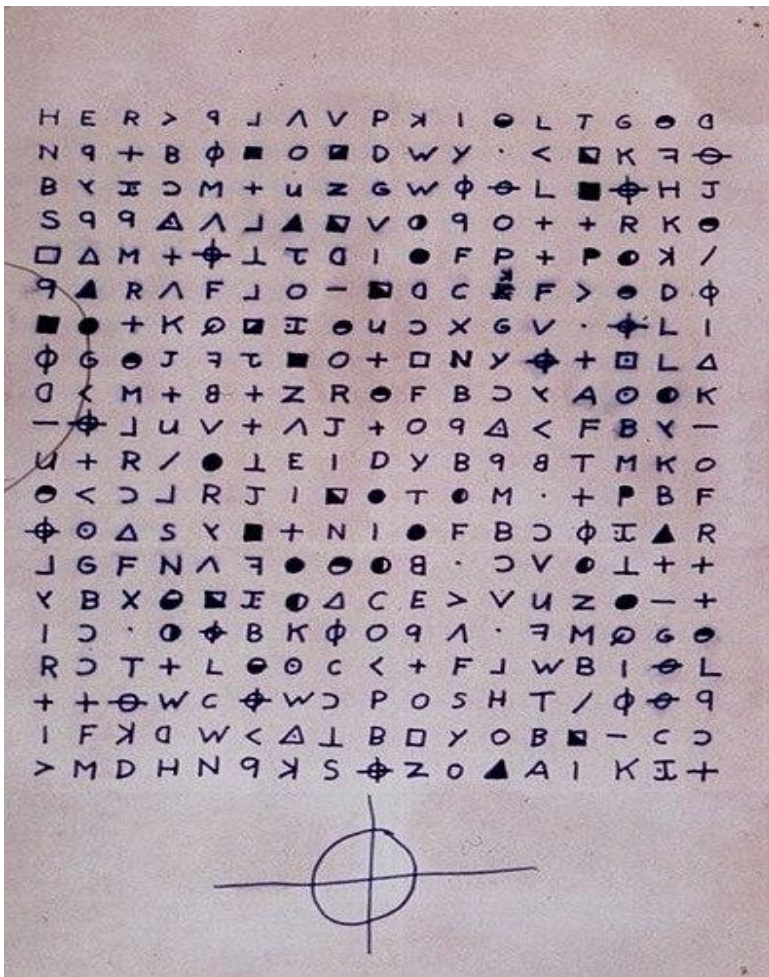 H E R > ꟼ ⅃ Λ V P ꓘ I ◒ L T G ◓ ᗡ
N ꟼ + B Φ ■ O ◪ D W Y · < ⬕ K ꟻ ⊖
B ⅄ ⌶ Ɔ M + U Z G W Φ ⊖ L ■ ⌖ H J
S ꟼ ꟼ ◬ Λ ⅃ ▲ ⬕ V ◑ ꟼ O + + R K ◓
□ △ M + ⌖ ⊥ τ ᗡ I ● F P + P ◐ ꓘ /
ꟼ ▲ R Λ F ⅃ O - ⬕ ᗡ C ꓘ F > ◓ D Φ
■ ● + K ∅ ◪ ⌶ ◓ U Ɔ X G V · ⌖ L I
Φ G ◓ J ꟻ τ ■ O + □ N Y ⌖ + ⊡ L △
ᗡ < M + 8 + Z R ◓ F B Ɔ ⅄ A ⊙ ◐ K
- ⌖ ⅃ U V + Λ J + O ꟼ ◬ < F B ⅄ -
U + R / ● ⊥ E I D Y B ꟼ 8 T M K O
◓ < Ɔ ⅃ R J I ⬕ ● T ◐ M · + P B F
⌖ ⊙ △ S ⅄ ■ + N I ● F B Ɔ Φ ⌶ ▲ R
⅃ G F N Λ ꟻ ● ◓ ◐ 8 · Ɔ V ◐ ⊥ + +
⅄ B X ◒ ⬕ ⌶ ◐ △ C E > V U Z ● - +
I Ɔ · ◑ ⌖ B K Φ O ꟼ Λ · ꟻ M ∅ G ◓
R Ɔ T + L ◒ ⊙ C < + F ⅃ W B I ⊖ L
+ + ⊖ W C ⌖ W Ɔ P O S H T / Φ ⊖ ꟼ
I F ꓘ ᗡ W < ◬ ⊥ B □ Y O B ⬕ - C Ɔ
> M D H N ꟼ ꓘ S ⌖ Z O ▲ A I K ⌶ +
⌖